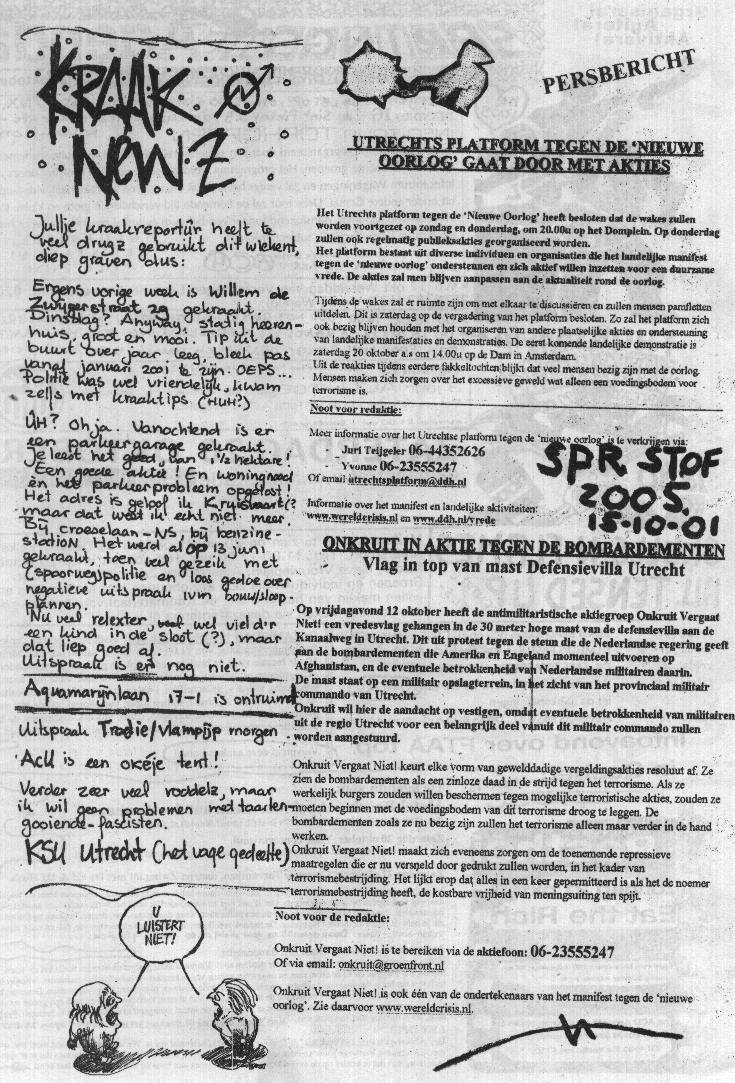 KRAAK
NEWZ
Jullie kraakreportûr heeft te
veel drugz gebruikt dit wiekent,
diep graven dus:
Ergens vorige week is Willem de
Zwijgerstraat 29 gekraakt.
Dinsdag? Anyway: stadig heeren-
huis, groot en mooi. Tip uit de
buurt over jaar leeg, bleek pas
vanaf januari 2001 te zijn. OEPS...
Politie was wel vriendelijk, kwam
zelfs met kraaktips. (HUH?)
ÛH? Oh ja. Vanochtend is er
een parkeergarage gekraakt.
Je leest het goed, van 1½ hektare!
Een goede aktie! En woningnood
èn het parkeerprobleem opgelost!
Het adres is geloof ik Kruisvaart(?)
maar dat weet ik echt niet meer.
Bij croeselaan-NS, bij benzine-
station. Het werd al op 13 juni
gekraakt, toen veel gezeik met
(spoorweg)politie en loos gedoe over
negatieve uitspraak ivm bouw/sloop-
plannen.
Nu veel relexter, wel viel d'r
een kind in de sloot (?), maar
dat liep goed af.
Uitspraak is er nog niet.
Aquamarijnlaan 17-1 is ontruimd
Uitspraak Tradie/Vlampijp morgen
ACU is een okéje tent!
Verder zeer veel roddelz, maar
ik wil geen problemen met taarten-
gooiende-fascisten.
KSU Utrecht (het vage gedeelte)
U
LUISTERT
NIET!
PERSBERICHT
UTRECHTS PLATFORM TEGEN DE ‘NIEUWE
OORLOG’ GAAT DOOR MET AKTIES
Het Utrechts platform tegen de ‘Nieuwe Oorlog’ heeft besloten dat de wakes zullen
worden voortgezet op zondag en donderdag, om 20.00u op het Domplein. Op donderdag
zullen ook regelmatig publieksakties georganiseerd worden.
Het platform bestaat uit diverse individuen en organisaties die het landelijke manifest
tegen de ‘nieuwe oorlog’ ondersteunen en zich aktief willen inzetten voor een duurzame
vrede. De akties zal men blijven aanpassen aan de aktualiteit rond de oorlog.
Tijdens de wakes zal er ruimte zijn om met elkaar te discussiëren en zullen mensen pamfletten
uitdelen. Dit is zaterdag op de vergadering van het platform besloten. Zo zal het platform zich
ook bezig blijven houden met het organiseren van andere plaatselijke akties en ondersteuning
van landelijke manifestaties en demonstraties. De eerst komende landelijke demonstratie is
zaterdag 20 oktober a.s om 14.00u op de Dam in Amsterdam.
Uit de reakties tijdens eerdere fakkeltochten blijkt dat veel mensen bezig zijn met de oorlog.
Mensen maken zich zorgen over het excessieve geweld wat alleen een voedingsbodem voor
terrorisme is.
Noot voor redaktie:
Meer informatie over het Utrechtse platform tegen de ‘nieuwe oorlog’ is te verkrijgen via:
- Juri Teijgeler 06-44352626
- Yvonne 06-23555247
Of email utrechtsplatform@ddh.nl
Informatie over het manifest en landelijke aktiviteiten:
www.wereldcrisis.nl en www.ddh.nl/vrede
SPR. STOF
2005.
15-10-01
ONKRUIT IN AKTIE TEGEN DE BOMBARDEMENTEN
Vlag in top van mast Defensievilla Utrecht
Op vrijdagavond 12 oktober heeft de antimilitaristische aktiegroep Onkruit Vergaat
Niet! een vredesvlag gehangen in de 30 meter hoge mast van de defensievilla aan de
Kanaalweg in Utrecht. Dit uit protest tegen de steun die de Nederlandse regering geeft
aan de bombardementen die Amerika en Engeland momenteel uitvoeren op
Afghanistan, en de eventuele betrokkenheid van Nederlandse militairen daarin.
De mast staat op een militair opslagterrein, in het zicht van het provinciaal militair
commando van Utrecht.
Onkruit wil hier de aandacht op vestigen, omdat eventuele betrokkenheid van militairen
uit de regio Utrecht voor een belangrijk deel vanuit dit militair commando zullen
worden aangestuurd.
Onkruit Vergaat Niet! keurt elke vorm van gewelddadige vergeldingsakties resoluut af. Ze
zien de bombardementen als een zinloze daad in de strijd tegen het terrorisme. Als ze
werkelijk burgers zouden willen beschermen tegen mogelijke terroristische akties, zouden ze
moeten beginnen met de voedingsbodem van dit terrorisme droog te leggen. De
bombardementen zoals ze nu bezig zijn zullen het terrorisme alleen maar verder in de hand
werken.
Onkruit Vergaat Niet! maakt zich eveneens zorgen om de toenemende repressieve
maatregelen die er nu versneld door gedrukt zullen worden, in het kader van
terrorismebestrijding. Het lijkt erop dat alles in een keer gepermitteerd is als het de noemer
terrorismebestrijding heeft, de kostbare vrijheid van meningsuiting ten spijt.
Noot voor de redaktie:
Onkruit Vergaat Niet! is te bereiken via de aktiefoon: 06-23555247
Of via email: onkruit@groenfront.nl
Onkruit Vergaat Niet! is ook één van de ondertekenaars van het manifest tegen de ‘nieuwe
oorlog’. Zie daarvoor www.wereldcrisis.nl.